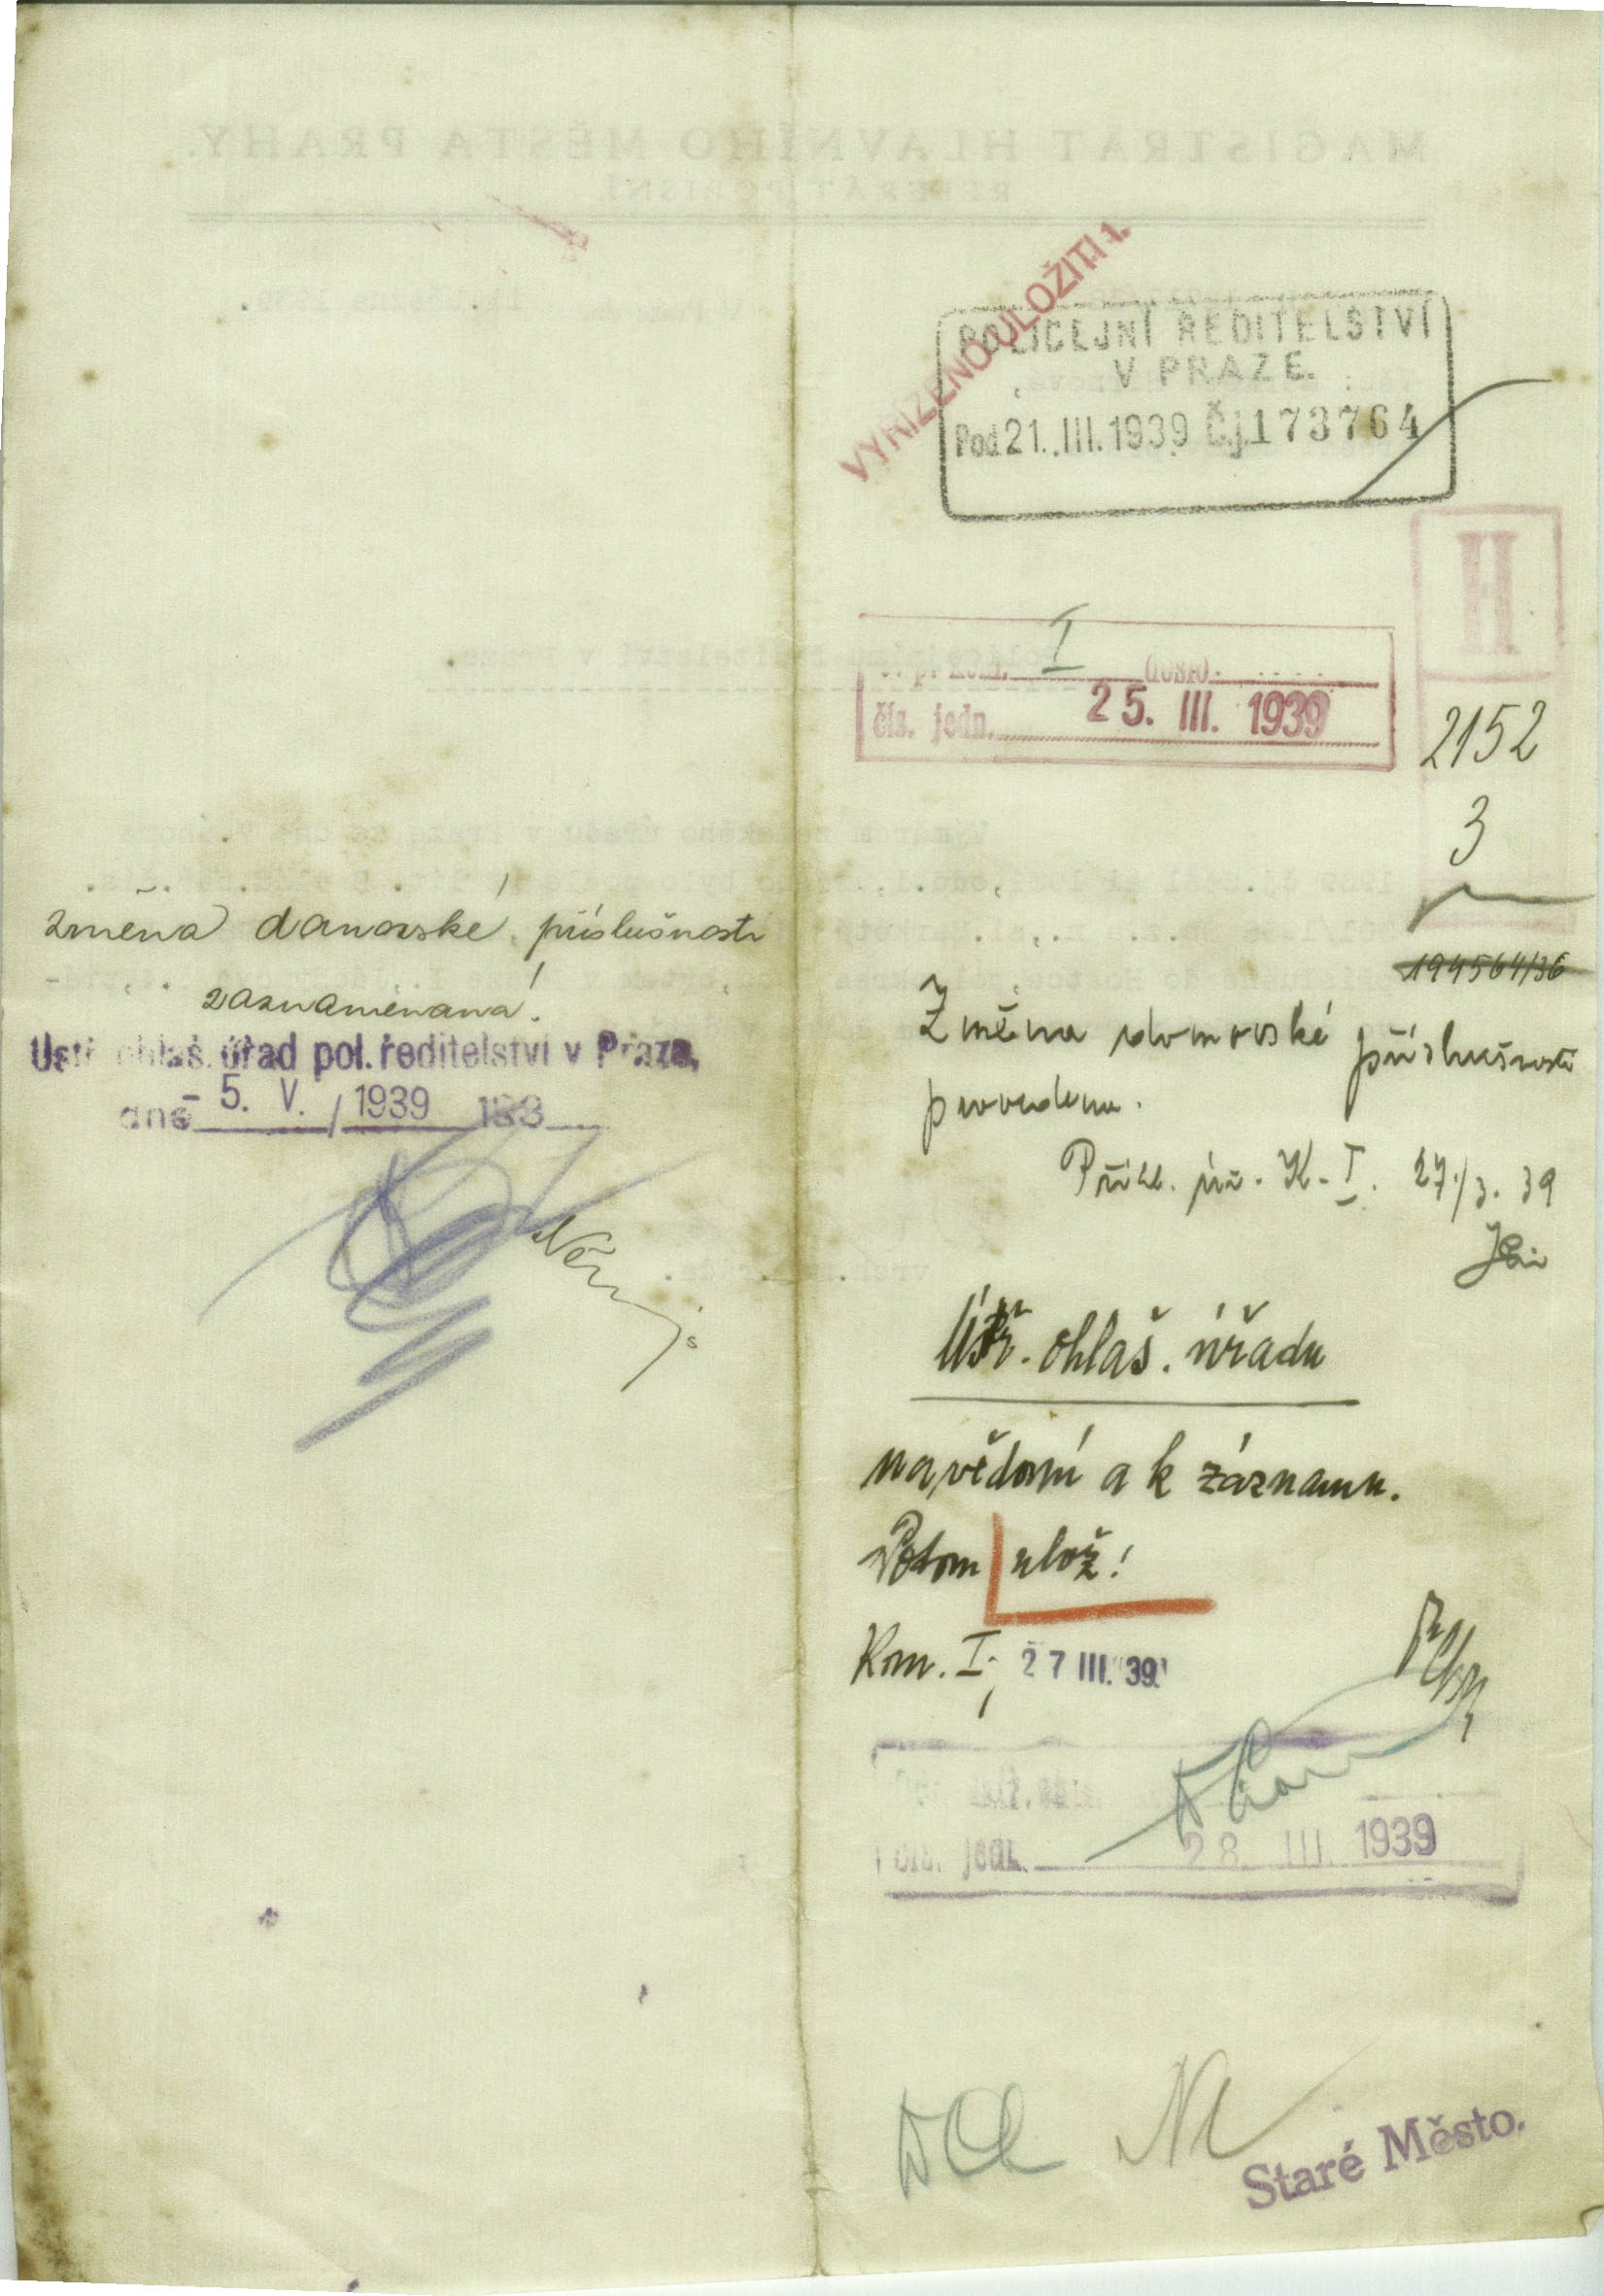 VYŘÍZENO ULOŽITI 1.
POLICEJNÍ ŘEDITELSTVÍ
V PRAZE.
Pod 21. III. 1939 Č.j. 173764
H
I
čís. jedn. 25. III. 1939
2152
3
194564/36
změna domovské příslušnosti
zaznamenána!
Ústř. ohlaš. úřad pol. ředitelství v Praze,
dne - 5. V. / 1939 193
Změna domovské příslušnosti
provedena.
K. I. 27./3. 39
Ústř. ohlaš. úřadu
na vědomí a k záznamu.
Potom ulož!
Kom. I, 27 III. 39
čís. jedn. 28. III. 1939
Staré Město.